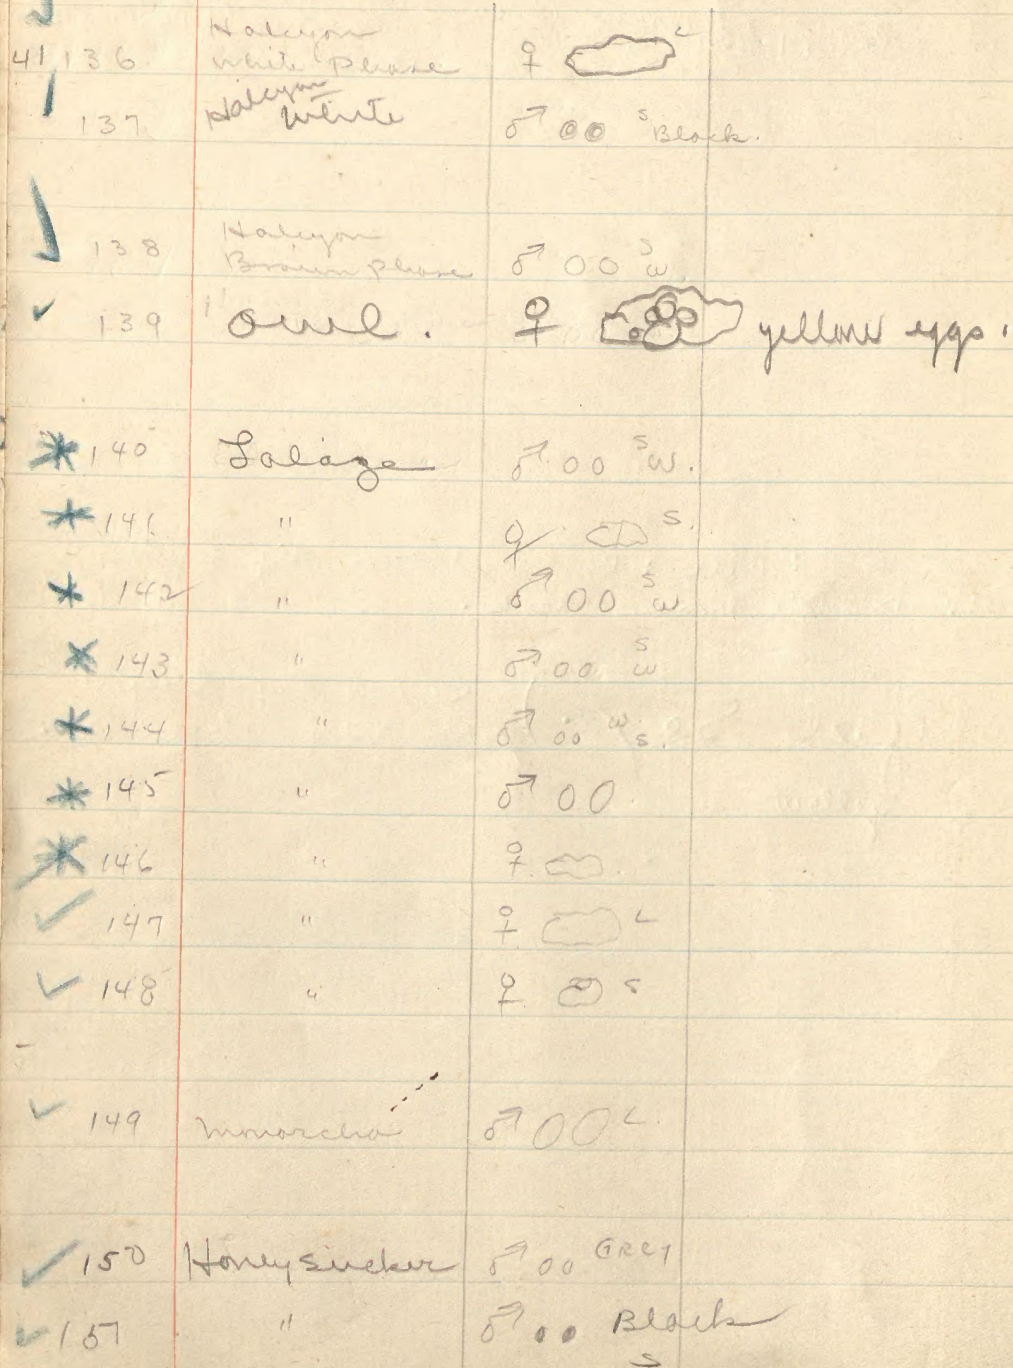 Halcyon
41 136 White Phase ♀ L
137 Halcyon White ♂ S Black.
Halcyon
138 Brown Phase ♂ S W
139 " Owl. ♀ yellow eggs.
140 Lalage ♂ S W.
141 " ♀ S.
142 " ♂ S W
143 " ♂ S W
144 " ♂ W S.
145 " ♂
146 " ♀
147 " ♀ L
148 " ♀ S
149 Monarcha ♂ L.
150 Honeysucker ♂ GREY
151 " ♂ Black
S